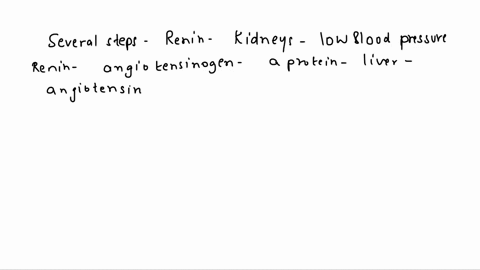 Several steps - Renin - Kidneys - low Blood pressure
Renin - angiotensinogen - a protein - liver -
angiotensin